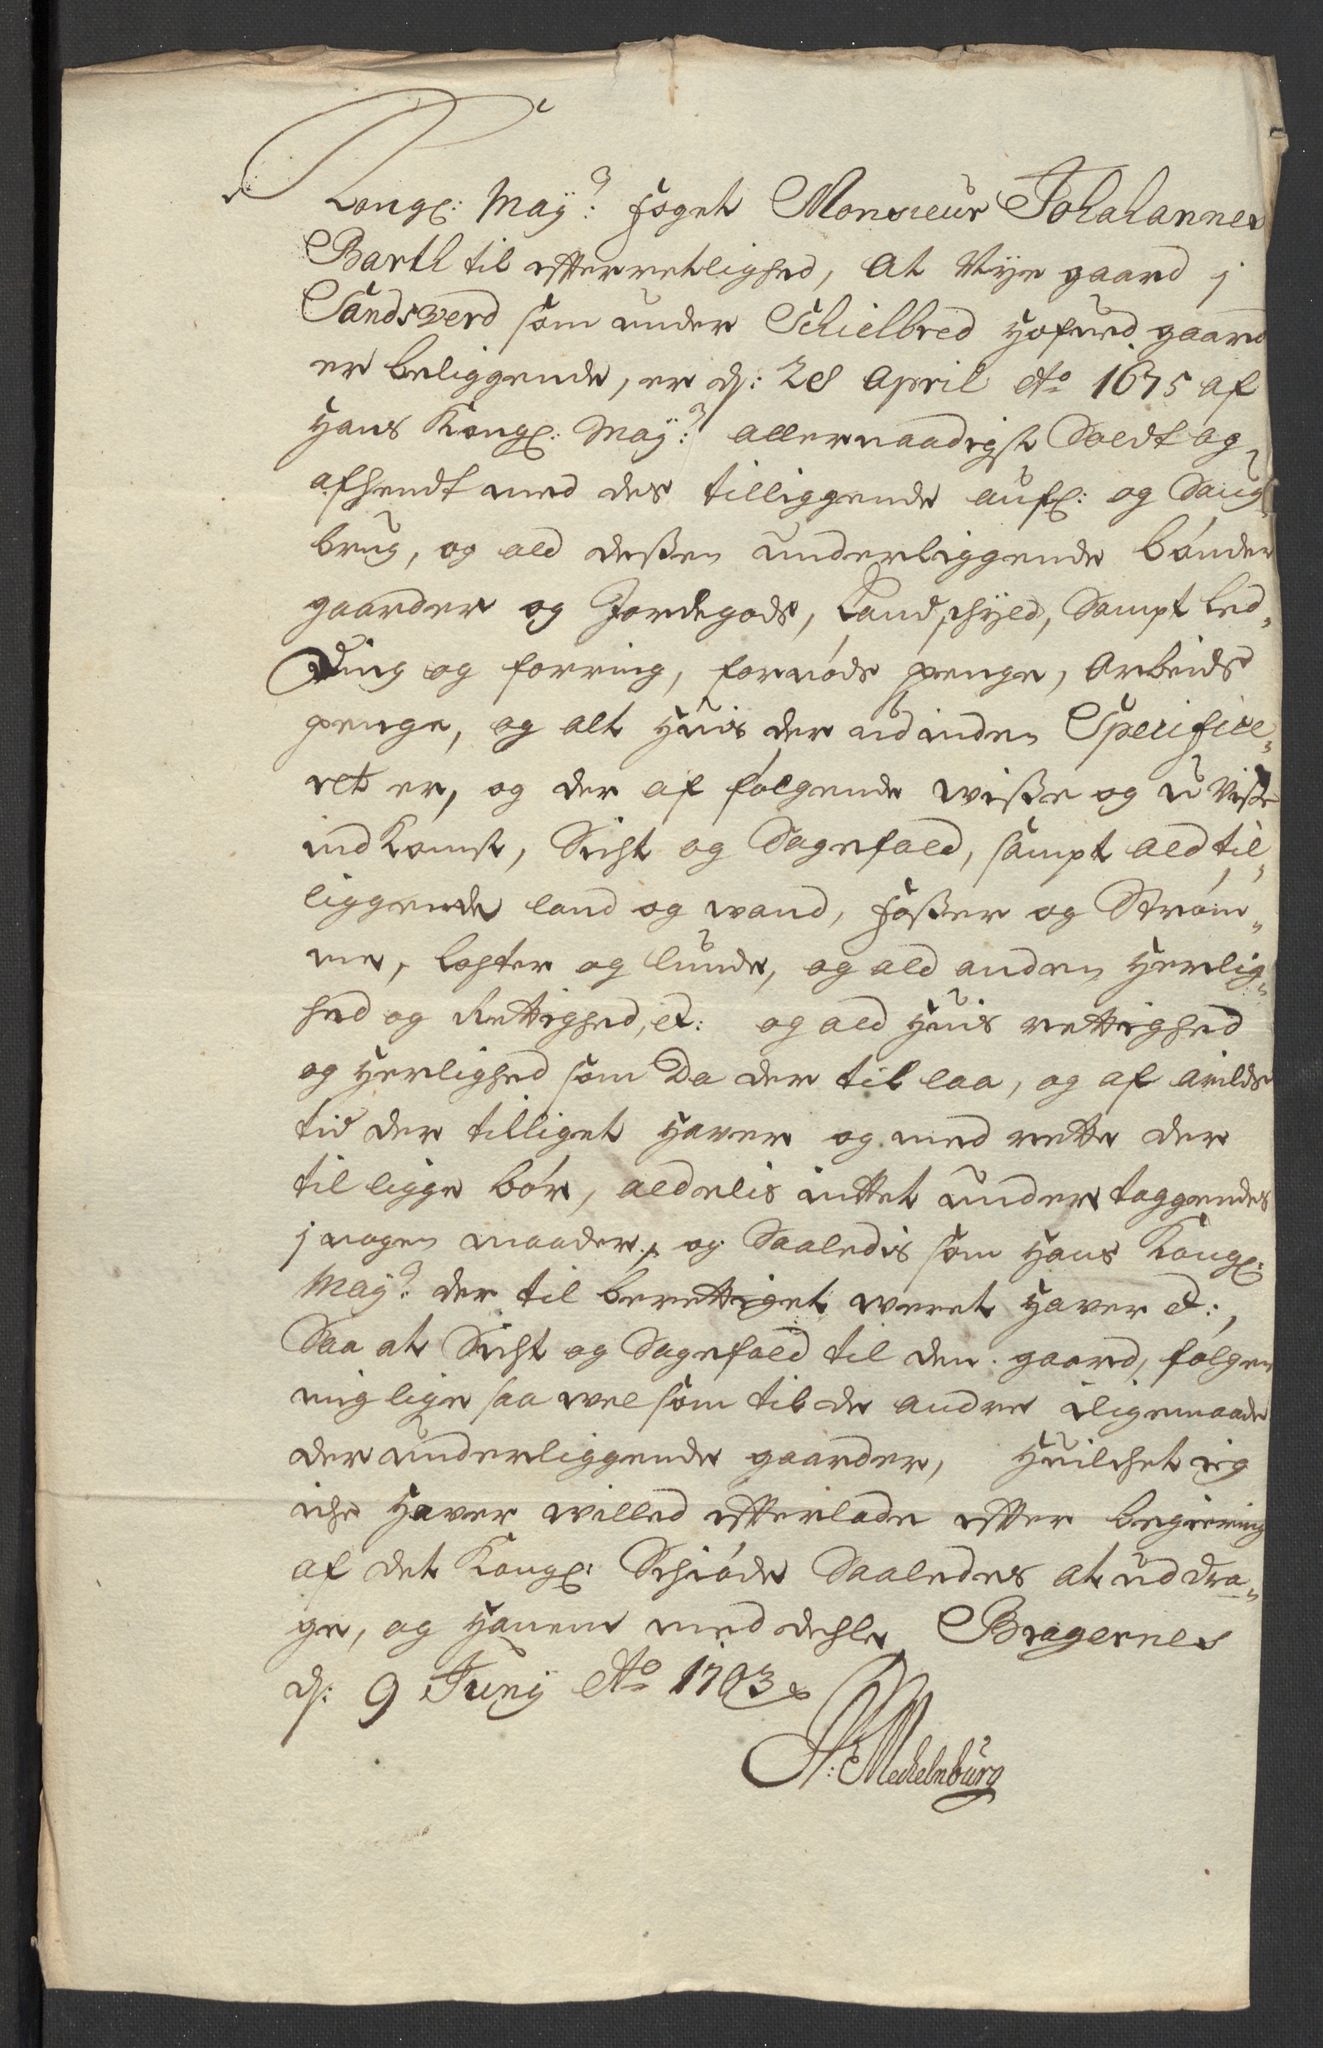 Kongl: May: foget Monsieur Johahannes
Barth til efterretlighed, at Nye gaard j
Sandsverd som under Schielbred hofued gaard
er beliggende, er d: 28 April Ao 1675 af
hans Kongl: May: allernaadigst Soldt og
afhendt med des tilliggende aufl: og Saug
brug, og ald dessen underliggende bønder
gaarder og Jordegods, Landschyld, Sampt Led-
ding og forring, fornøds penge, Arbeids
penge, og alt huis der udinden Specifice-
ret er, og der af følgende wisse og u visse
indkomst, Sicht og Sagefald, sampt ald til-
liggende land og wand, fosser og Strøm-
me, Loster og lunde, og ald anden herlig-
hed og Rettighed, et: og ald huis rettighed
og herlighed som Da der til laa, og af arilds
tid der tilliget haver og med rette der
til ligge bør, aldelis inttet under taggendes
j nogen maader, og Saaledis som hans Kongl:
May: der til berettiget weret haver et:,
Saa at Sicht og Sagefald til den gaard, følger
mig lige saa wel som til de andre iligemaade
der underliggende gaarder, huilchet ieg
iche haver willed efterlade efter begiering
af det Kongl: Schiøde Saaledes at uddra-
ge, og hanem meddehle, Bragernes
d: 9 Juny Ao 1703
H: Meckelnburg